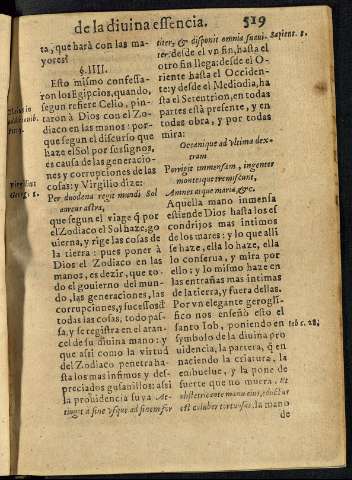 de la diuina essencia. 519
ta, que harà con las ma-
yores?
§. IIII.
Esto mismo confessa-
ron los Egipcios, quando,
segun refiere Celio, pin-
taron à Dios con el Zo-
diaco en las manos: por-
que segun el discurso que
haze el Sol por sus signos,
es causa de las generacio-
nes y corrupciones de las
cosas: y Virgilio dize:
Virgilius
Georgi. 1.
Per duodena regit mundi Sol
aureus astra,
que segun el viage q̃ por
el Zodiaco el Sol haze, go
uierna, y rige las cosas de
la tierra: pues poner à
Dios el Zodiaco en las
manos, es dezir, que to-
do el gouierno del mun-
do, las generaciones, las
corrupciones, y sucessos de
todas las cosas, todo pas-
sa, y se registra en el aran-
cel de su diuina mano: y
que assi como la virtud
del Zodiaco penetra ha-
sta los mas infimos y des-
preciados gusanillos: assi
la prouidencia suya At-
tingit à fine vsque ad finem for
titer, & disponit omnia suaui-
ter: desde el vn fin, hasta el
otro fin llega: desde el O-
riente hasta el Occiden-
te: y desde el Mediodia, ha
sta el Setentrion, en todas
partes està presente, y en
todas obra, y por todas
mira:
Sapient. 8.
Oceanique ad vltima dex-
tram
Porrigit immensam, ingentes
montesque tremiscunt,
Amnesque maria, &c.
Aquella mano inmensa
estiende Dios hasta los es
condrijos mas intimos
de los mares: y lo que alli
se haze, ella lo haze, ella
lo conserua, y mira por
ello: y lo mismo haze en
las entrañas mas intimas
de la tierra, y fuera dellas.
Por vn elegante gerogli-
fico nos enseñò esto el
santo Iob, poniendo en
Iob c. 28.
symbolo de la diuina pro
uidencia, la partera, q̃ en
naciendo la criatura, la
enbuelue, y la pone de
suerte que no muera. Et
obstetricante manu eius, eductus
est coluber tortuosus, la mano
de